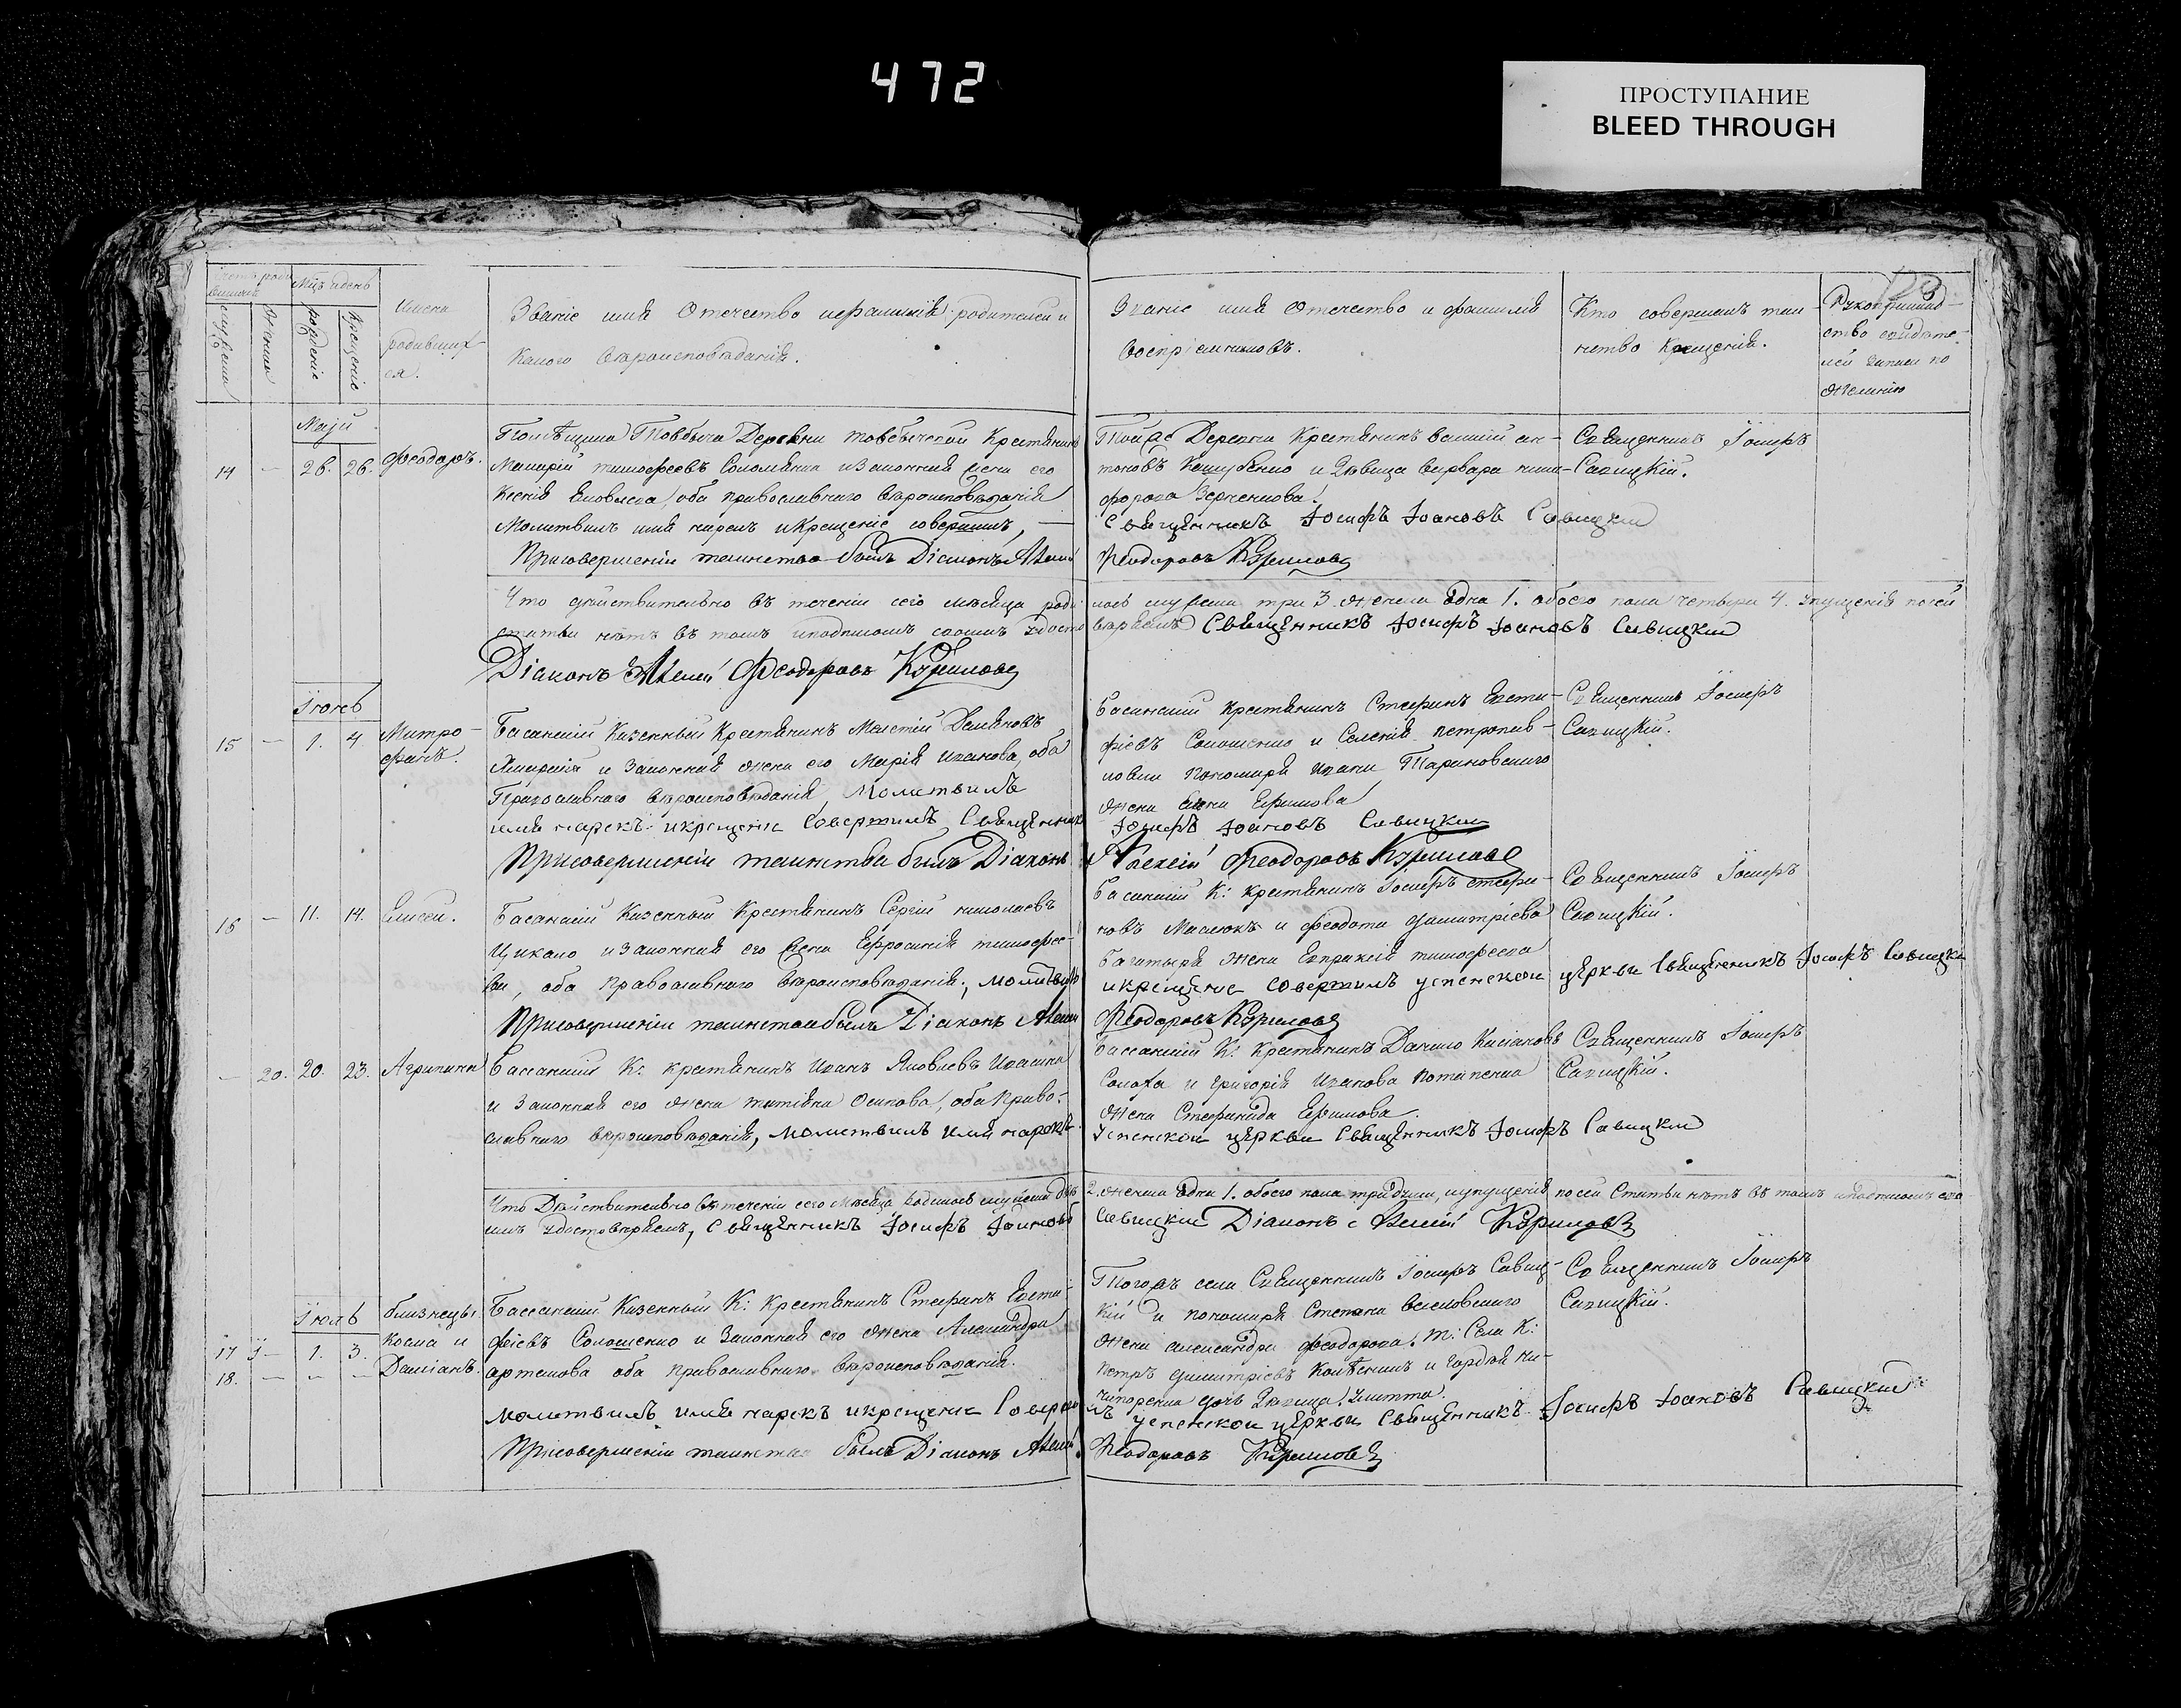 472
ПРОСТУПАНИЕ
BLEED THROUGH
Мцъ и день
мужеска
женска
рожденіе
крещеніе
Имена
родившихъ
ся.
Званіе имя Отечество и фамилія родителей и
какого вѣроисповѣданія.
Званіе имя Отечество и фамилія
воспріемниковъ.
Кто совершалъ таи-
нство Крещенія.
Рукоприклад-
ство свидѣте-
лей записи по
желанію
Маіи
14 — 26. 26. Феодоръ.
Помѣщика Товбыча Деревни товбычской Крестьянинъ
тимофеевъ и законная жена его
Ксенія оба православнаго вѣроисповѣданія
Молитвилъ имя нарекъ и Крещеніе совершилъ, —
При совершеніи таинства былъ Діаконъ Алексій
Тойже Деревни Крестьянинъ
и дѣвица варвара ники-
форова
Священникъ Іосифъ Іоановъ Савицкій
Феодоровъ Куриловъ
Священникъ Іосифъ
Савицкій.
Что дѣйствительно въ теченіи сего мѣсяца роди
лось мужеска три 3. женска одна 1. обоего пола четыри 4. упущенія по сей
статьи нѣтъ въ томъ и подписомъ своимъ удосто
вѣряемъ Священникъ Іосифъ Іоановъ Савицкій
Діаконъ Алексій Феодоровъ Куриловъ
Іюнь
15 — 1. 4 Митро-
фанъ.
Басанскій Казенный Крестьянинъ Демяновъ
и Законная жена его Марія иванова, оба
Православнаго вѣроисповѣданія, Молитвилъ
имя нарекъ и крещеніе Совершилъ Священникъ
При совершеніи таинства былъ Діаконъ
Басанскій крестьянинъ Стефанъ Евста-
фіевъ Солошенко и Селенія петропав-
ловки пономаря Ивана Тарановскаго
жена Анна Ефимова
Іосифъ Іоановъ Савицкій
Алексій Феодоровъ Куриловъ
Священникъ Іосифъ
Савицкій.
16 — 11. 14. Елисей.
Басанскій Казенный Крестьянинъ Сергій николаевъ
Цикало и законная его жена Ефросинія тимофее-
ва, оба православнаго вѣроисповѣданія, молитвилъ
При совершеніи таинства былъ Діаконъ Алексій
Басанскій К: крестьянинъ Іосифъ стефа-
новъ Маслюкъ и феодота димитріева
Багатыря жена Евпраксія тимофеева
и крещеніе совершилъ успенской церкви Священникъ Іосифъ Савицкій
Феодоровъ Куриловъ
Священникъ Іосифъ
Савицкій.
— 20. 20. 23. Агрипина
Бассанскій К: крестьянинъ Иванъ Яковлевъ
и Законная его жена татіяна Осипова, оба право-
славнаго вѣроисповѣданія, молитвилъ имя нарекъ
Бассанскій К: Крестьянинъ Данило Касіановъ
Солоха и григорія Иванова Потапенка
жена Стефанида Ефимова.
Успенской церкви Священникъ Іосифъ Савицкій
Священникъ Іосифъ
Савицкій.
Что Дѣйствительно въ теченіи сего мѣсяца родилось мужеска два
2. женска одна 1. обоего пола три души, и упущенія по сей Статьи нѣтъ въ томъ и подписомъ сво
имъ удостовѣряемъ, Священникъ Іосифъ Іоановъ
Савицкій Діаконъ Алексій Куриловъ
Іюль
17 — 1. 3.
18. — — —
близнецы
косма и
Даміанъ.
Бассанскій Казенный К: Крестьянинъ Стефанъ Евста-
фіевъ Солошенко и Законная его жена Александра
артемова оба православнаго вѣроисповѣданія.
молитвилъ имя нарекъ и крещеніе Соверши
При совершеніи таинства былъ Діаконъ Алексій
Тогожъ села Священникъ Іосифъ Савиц-
кій и пономаря Стефана
жена александра феодорова. т: Села К:
петръ димитріевъ и
дочь Дѣвица
лъ успенской церкви Священникъ Іосифъ Іоановъ Савицкій
Феодоровъ Куриловъ
Священникъ Іосифъ
Савицкій.